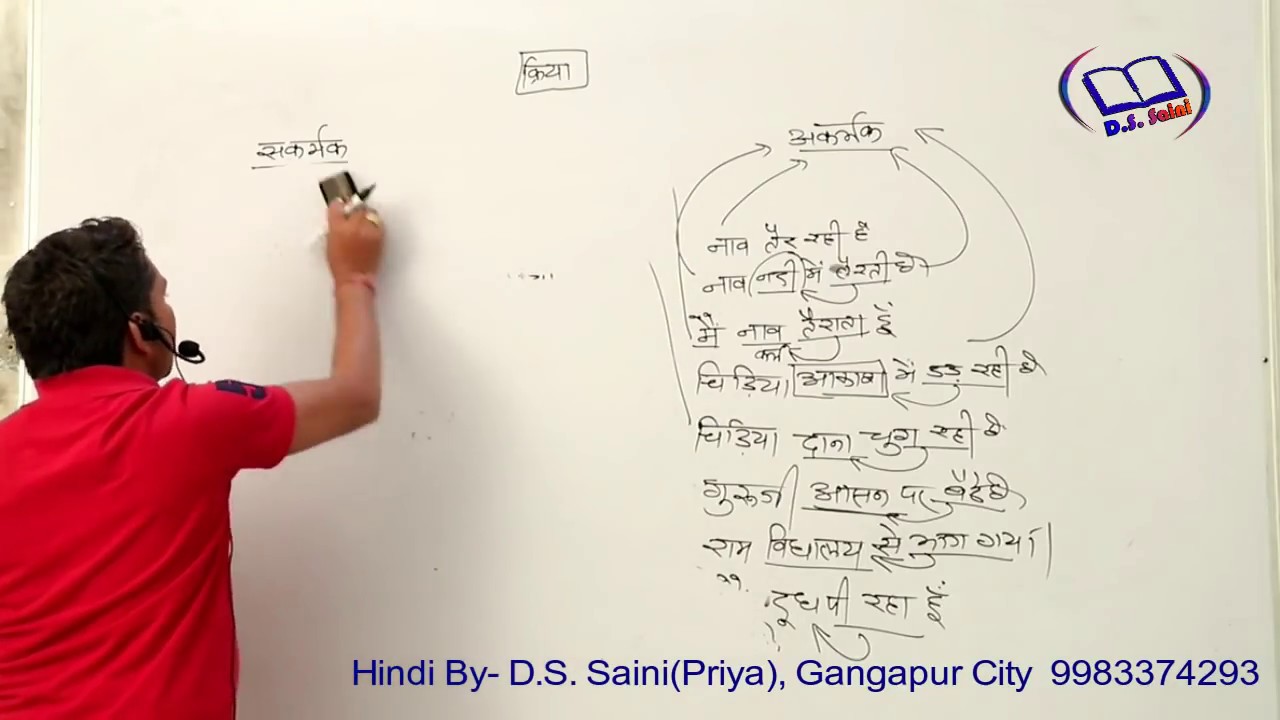 क्रिया
सकर्मक
अकर्मक
नाव तैर रही है
नाव नदी में तैरती है
मैं नाव तैराता हूँ
कर्म
चिड़िया आकाश में उड़ रही है
चिड़िया दाना चुगु रही है
गुरूजी आसन पर बैठे है
राम विद्यालय से भाग गया।
दूध पी रहा हूँ
D.S. Saini
Hindi By- D.S. Saini(Priya), Gangapur City 9983374293